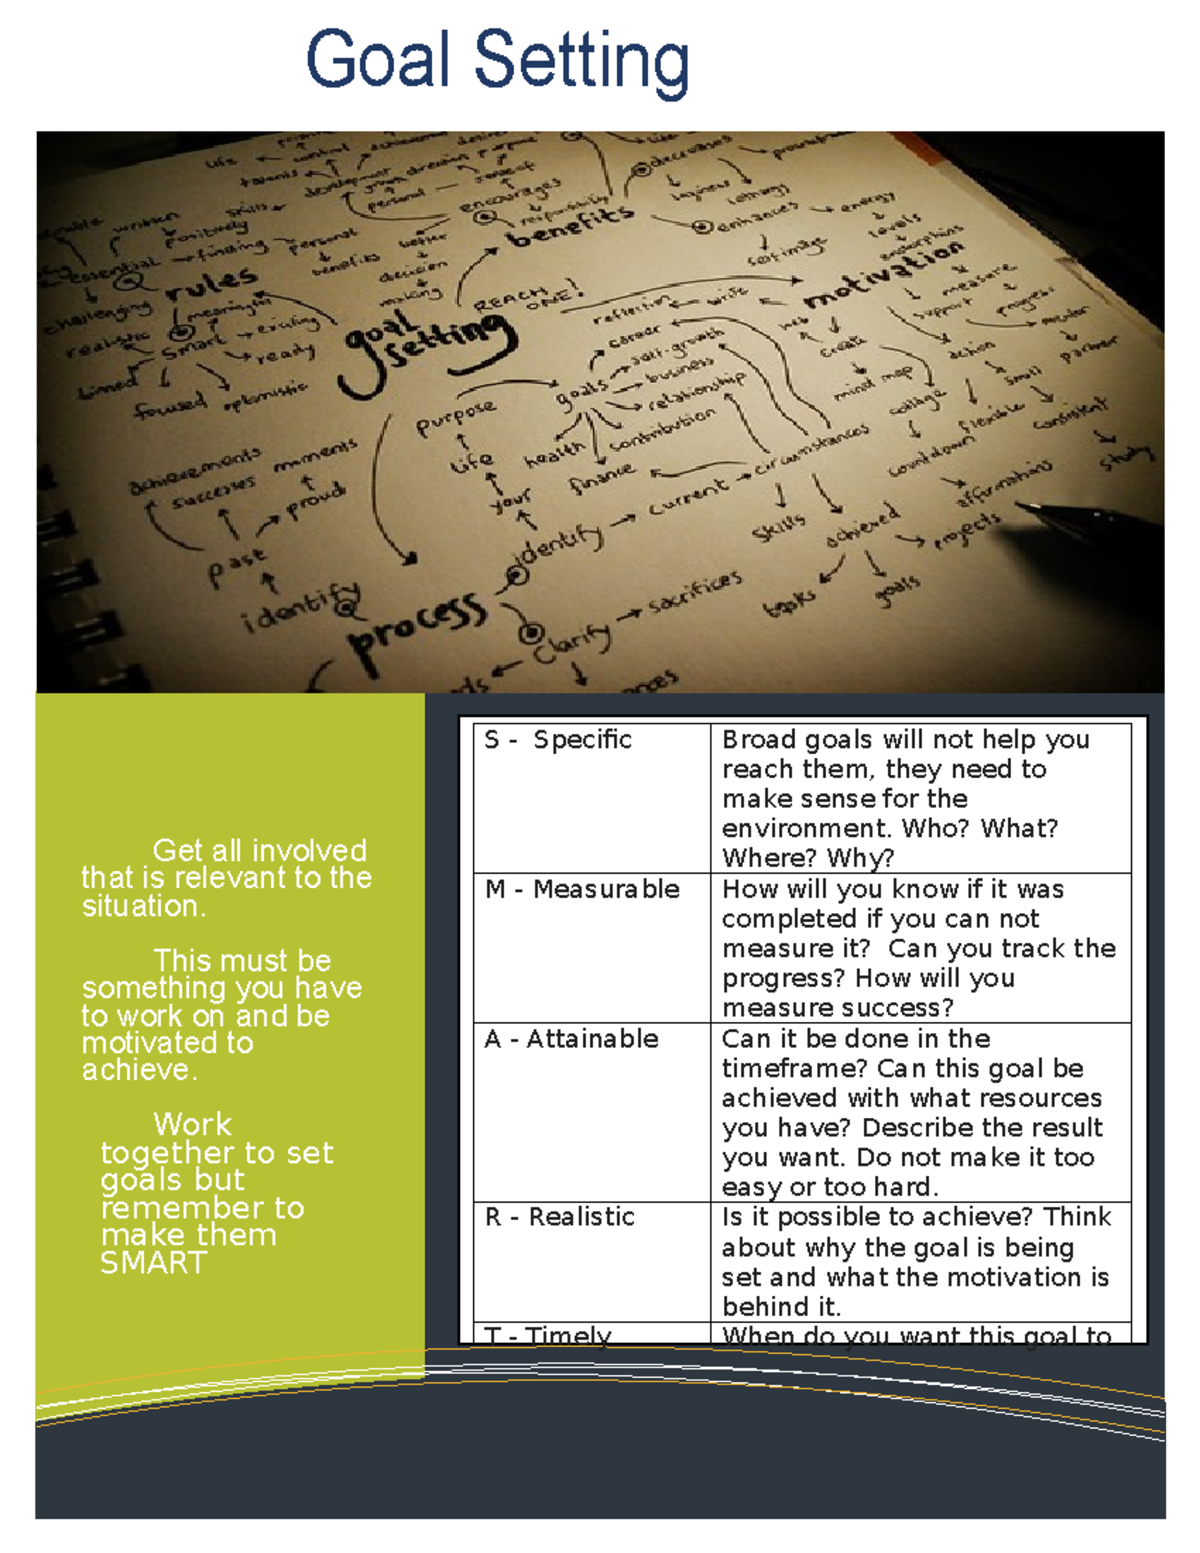 Goal Setting
life
control
talents
development
personal
skills
encourages
responsibility
decreases
lethargy
written
positively
essential
finding
personal
benefits
better
decision
making
benefits
enhances
energy
levels
endorphins
self image
rules
meaningful
challenging
realistic
smart
existing
ready
timed
focused
optimistic
goal
setting
REACH
ONE!
reflection
write
motivation
measure
progress
support
mentor
partner
action
small
create
mind map
collage
flexible
consistent
study
countdown
affirmations
projects
career
self-growth
business
relationship
contribution
goals
health
finance
purpose
life
your
identify
current
circumstances
skills
achieved
tasks
goals
achievements
successes
moments
proud
past
identify
process
clarify
sacrifices
S - Specific
Broad goals will not help you
reach them, they need to
make sense for the
environment. Who? What?
Where? Why?
M - Measurable
How will you know if it was
completed if you can not
measure it?  Can you track the
progress? How will you
measure success?
A - Attainable
Can it be done in the
timeframe? Can this goal be
achieved with what resources
you have? Describe the result
you want. Do not make it too
easy or too hard.
R - Realistic
Is it possible to achieve? Think
about why the goal is being
set and what the motivation is
behind it.
T - Timely
When do you want this goal to
Get all involved
that is relevant to the
situation.
This must be
something you have
to work on and be
motivated to
achieve.
Work
together to set
goals but
remember to
make them
SMART